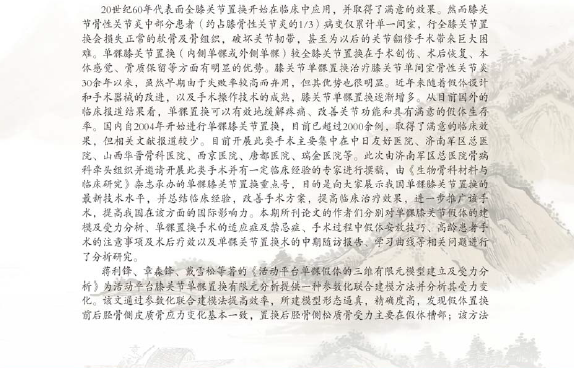 20世纪60年代表面全膝关节置换开始在临床中应用，并取得了满意的效果。然而膝关
节骨性关节炎中部分患者（约占膝骨性关节炎的1/3）病变仅累计单一间室，行全膝关节置
换会损失正常的软骨及骨组织，破坏关节韧带，甚至为以后的关节翻修手术带来巨大困
难。单髁膝关节置换（内侧单髁或外侧单髁）较全膝关节置换在手术创伤、术后恢复、本
体感觉、骨质保留等方面有明显的优势。膝关节单髁置换治疗膝关节单间室骨性关节炎
30余年以来，虽然早期由于失败率较高而弃用，但其优势也很明显。近年来随着假体设计
和手术器械的改进，以及手术操作技术的成熟，膝关节单髁置换逐渐增多。从目前国外的
临床报道结果看，单髁置换可以有效地缓解疼痛、改善关节功能和具有满意的假体生存
率。国内自2004年开始进行单髁膝关节置换，目前已超过2000余例，取得了满意的临床效
果，但相关文献报道较少。目前开展此类手术主要集中在中日友好医院、济南军区总医
院、山西华晋骨科医院、西京医院、唐都医院、瑞金医院等。此次由济南军区总医院骨病
科牵头组织并邀请开展此类手术并有一定临床经验的专家进行撰稿，由《生物骨科材料与
临床研究》杂志承办的单髁膝关节置换重点号，目的是向大家展示我国单髁膝关节置换的
最新技术水平，并总结临床经验，改善手术方案，提高临床治疗效果，进一步推广该手
术，提高我国在该方面的国际影响力。本期所刊论文的作者们分别对单髁膝关节假体的建
模及受力分析、单髁置换手术的适应症及禁忌症、手术过程中假体安放技巧、高龄患者手
术的注意事项及术后疗效以及单髁关节置换术的中期随访报告、学习曲线等相关问题进行
了分析研究。
蒋利锋、章淼锋、戴雪松等著的《活动平台单髁假体的三维有限元模型建立及受力分
析》为活动平台膝关节单髁置换有限元分析提供一种参数化联合建模方法并分析其受力变
化。该文通过参数化联合建模法提高效率，所建模型形态逼真，精确度高，发现假体置换
前后胫骨侧皮质骨应力变化基本一致，置换后胫骨侧松质骨受力主要在假体槽部；该方法